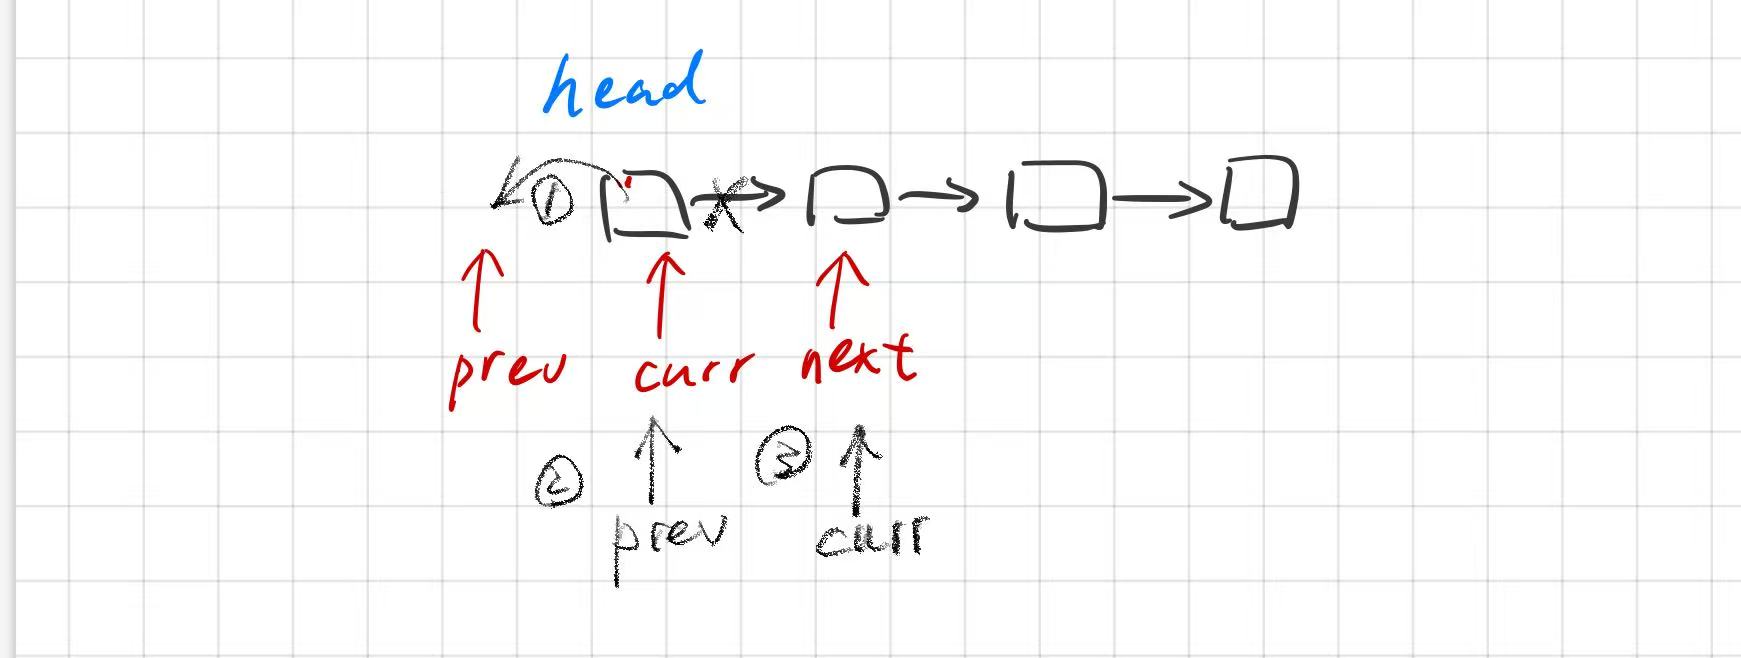 head
①
prev curr next
② ③
prev curr